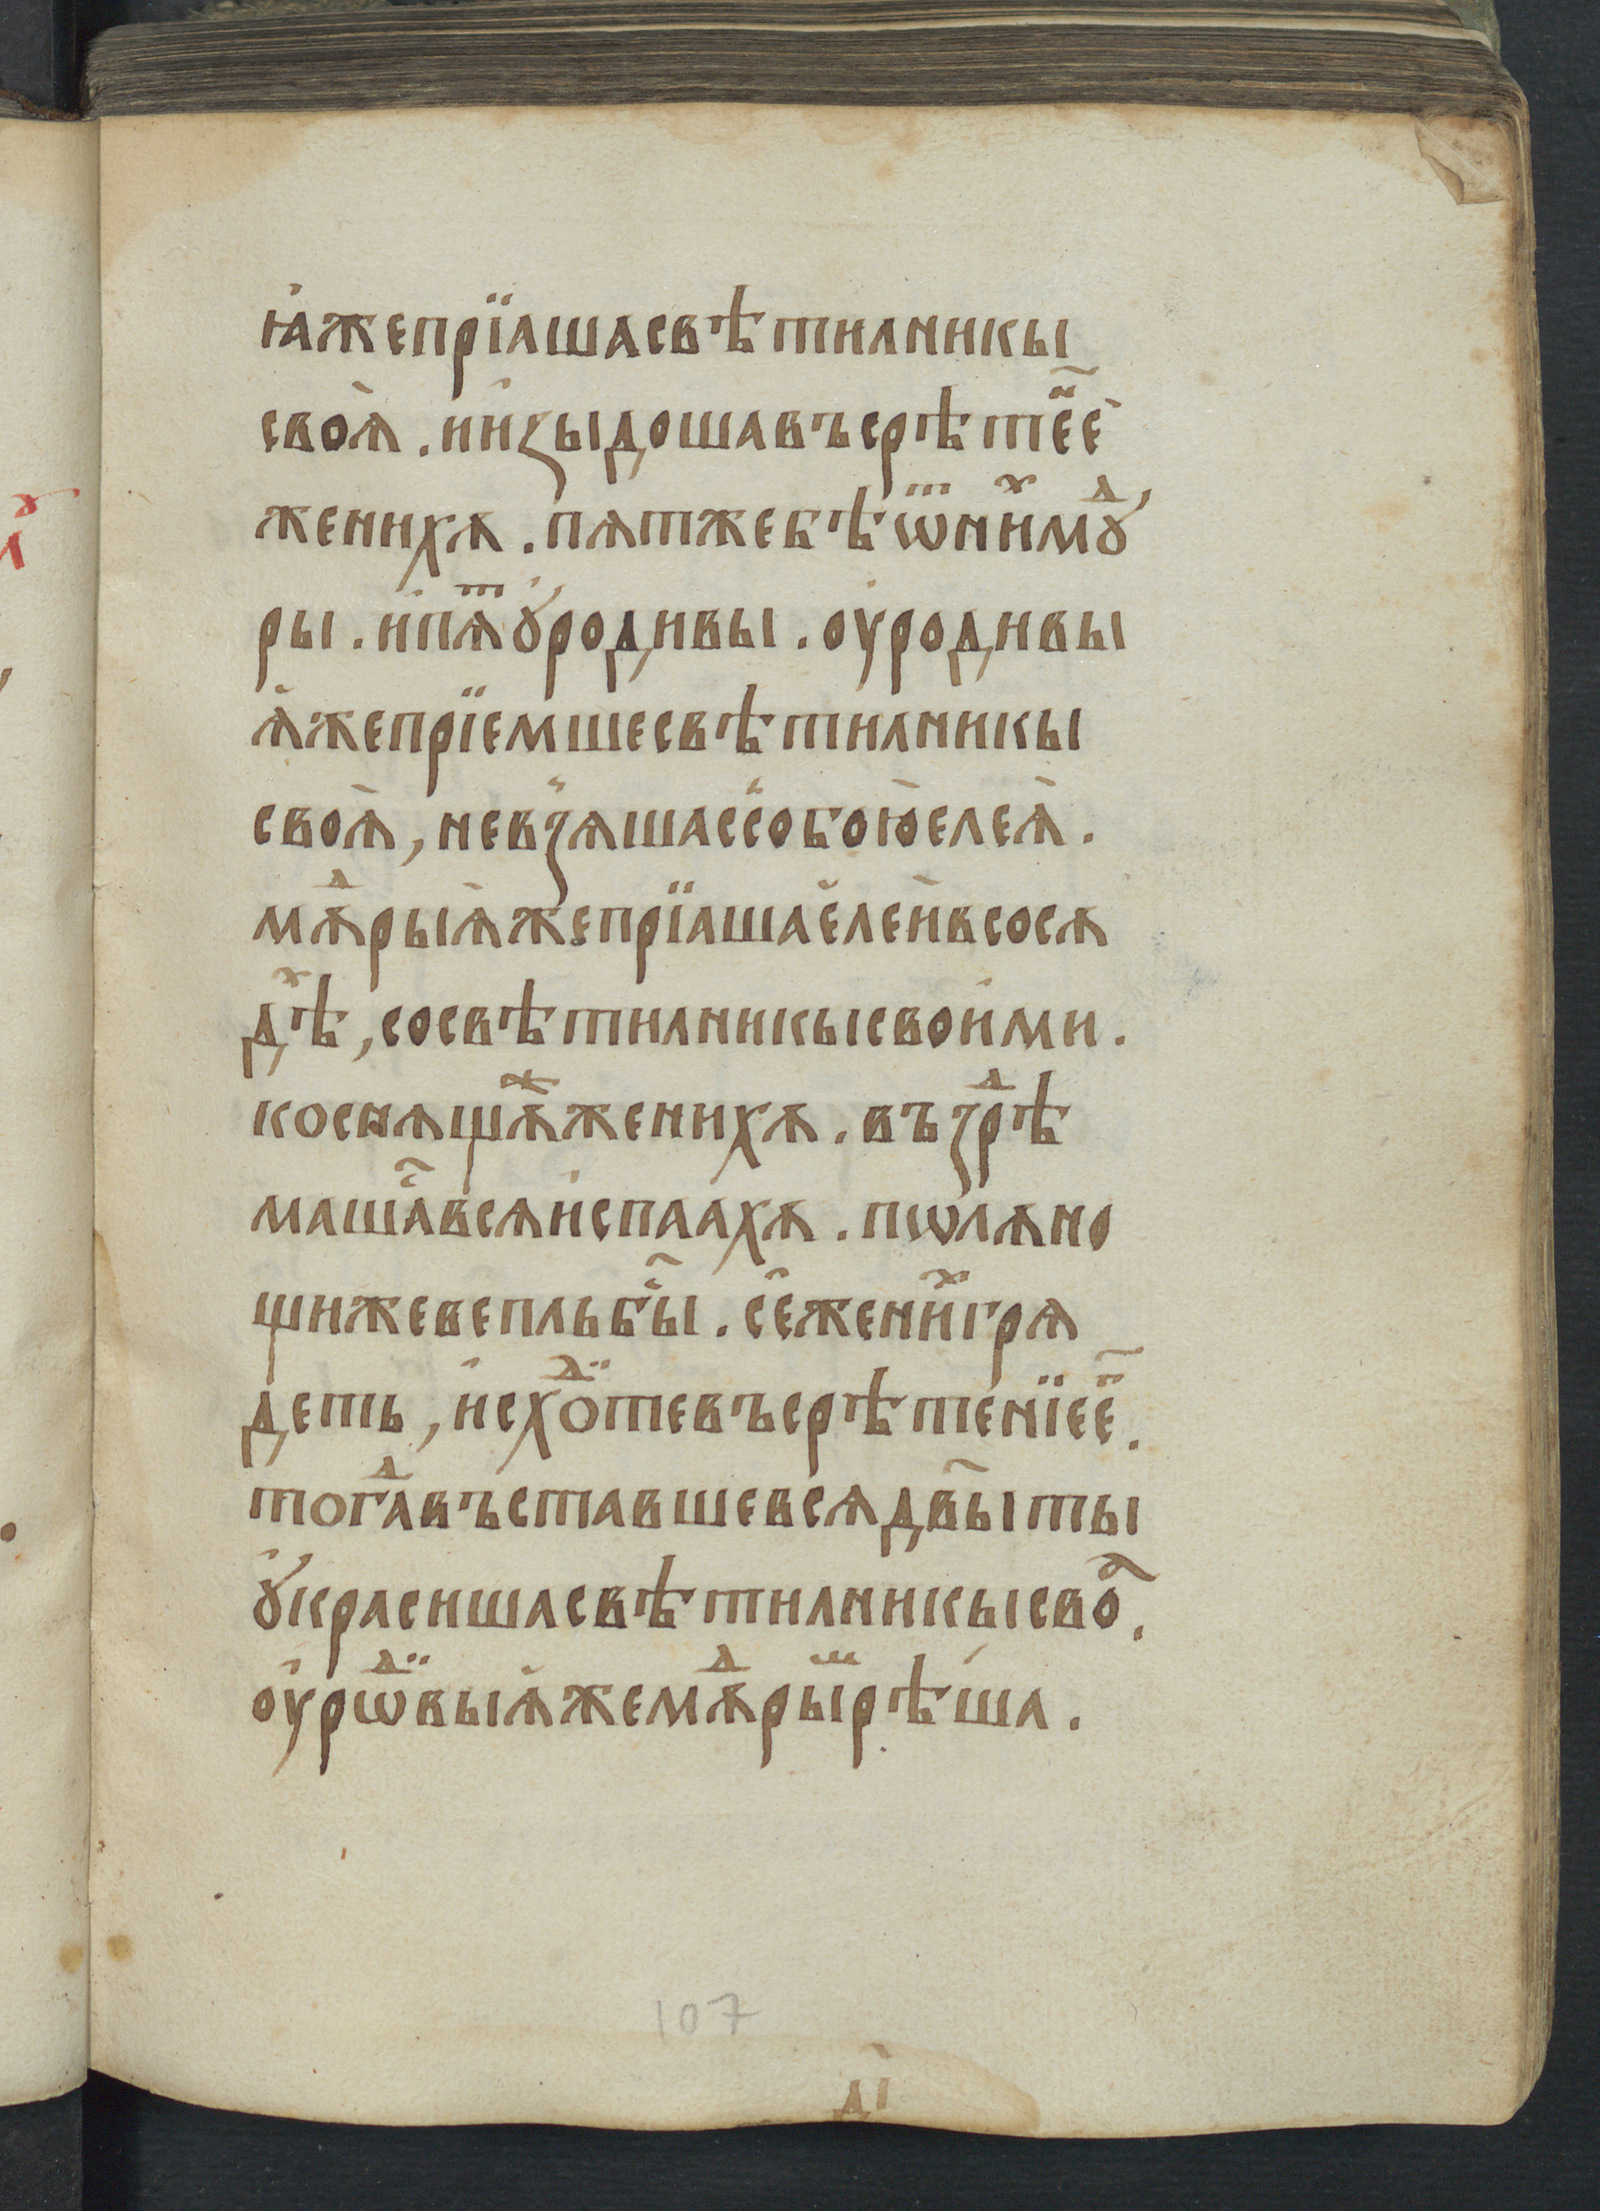 ꙗ҆жепрїашасвѣтилникы
своѧ̀ . ии҆ꙁыдошавъсрѣтє҃є
женихѧ . пѧтжебѣѿни҆ⷯмꙋⷣ
ры . и҆пѧⷮꙋ҆родивы . оуродивы
ѧ҆жепрїемшесвѣтилникы
своѧ̀ , невꙁѧшассобою҆елеѧ̀ .
мѫⷣрыѧ҆жепрїашае҆лей҆всосѧ
дⷯѣ , сосвѣтилникысвои҆ми .
коснѧщѧⷤженихѧ . въꙁрⷣѣ
машаⷭ҇всѧи҆спаахѧ . пѡлѧно
щижевепльбⷭ҇ы . се҆жени҆ⷯгрѧ
деть , и҆схоⷣ҇тевъсрѣтенїее҃ .
тогаⷣвъставшевсѧдв҃ыты
ꙋ҆красишасвѣтилникысво҃ .
оу҆рѡⷣвыѧ҆жемѫⷣрыⷨ҇рѣша .
107
д҃і